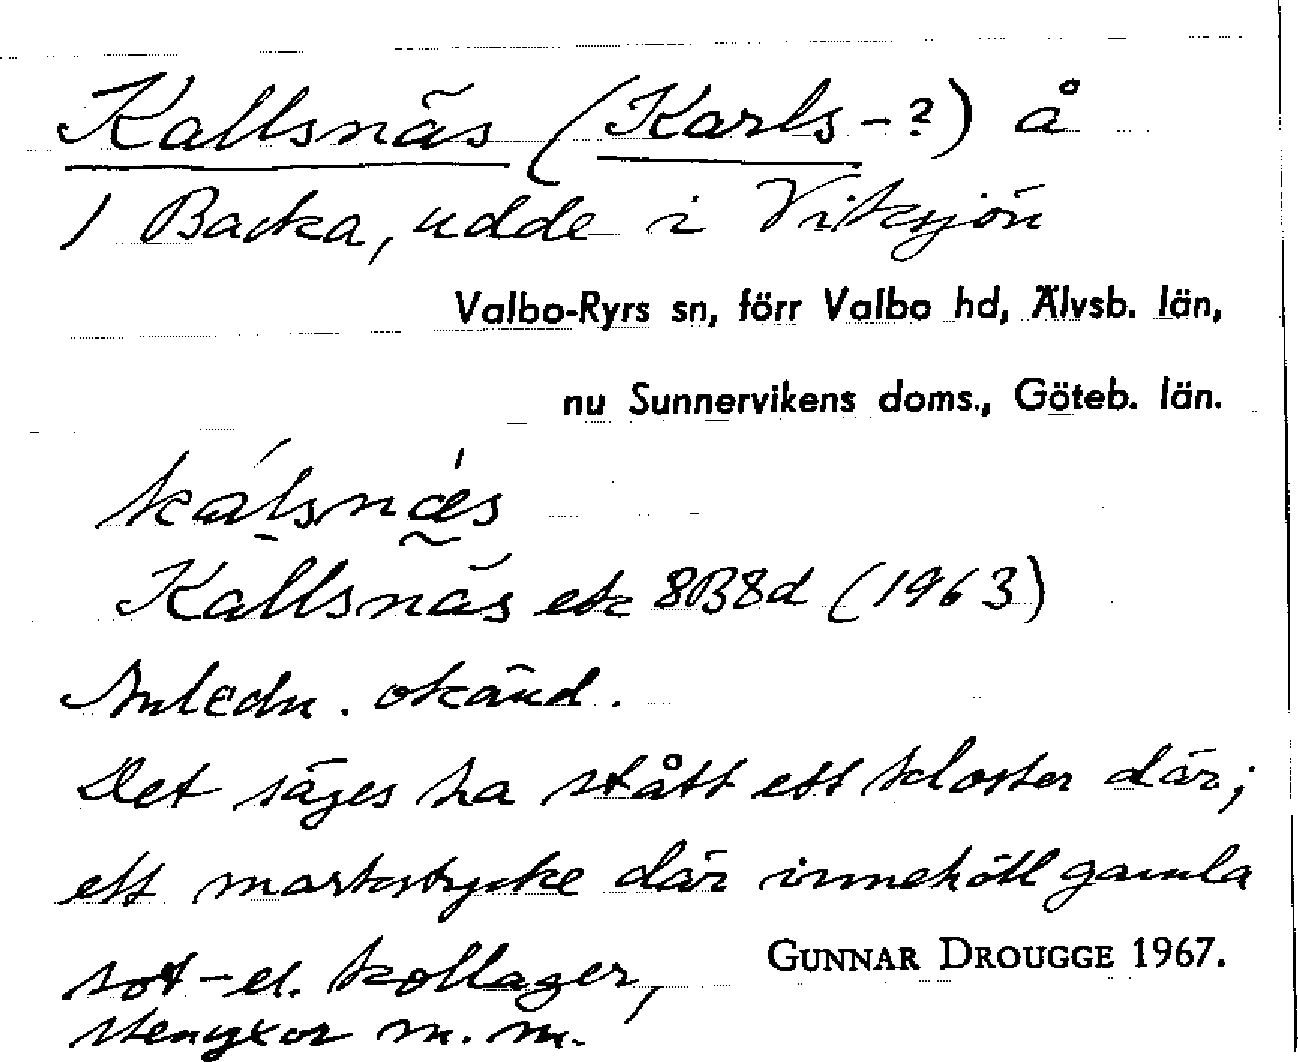 Kallsnäs (Karls-?) å
1 Backa, udde i Viksjön
Valbo-Ryrs sn, förr Valbo hd, Älvsb. län,
nu Sunnervikens doms., Göteb. län.
kálsnæ̀s
Kallsnäs ek 8B8d (1963)
Anledn. okänd.
Det säges ha stått ett kloster där;
ett markstycke där innehöll gamla
sot- el. kollager,
GUNNAR DROUGGE 1967.
stenyxor m. m.